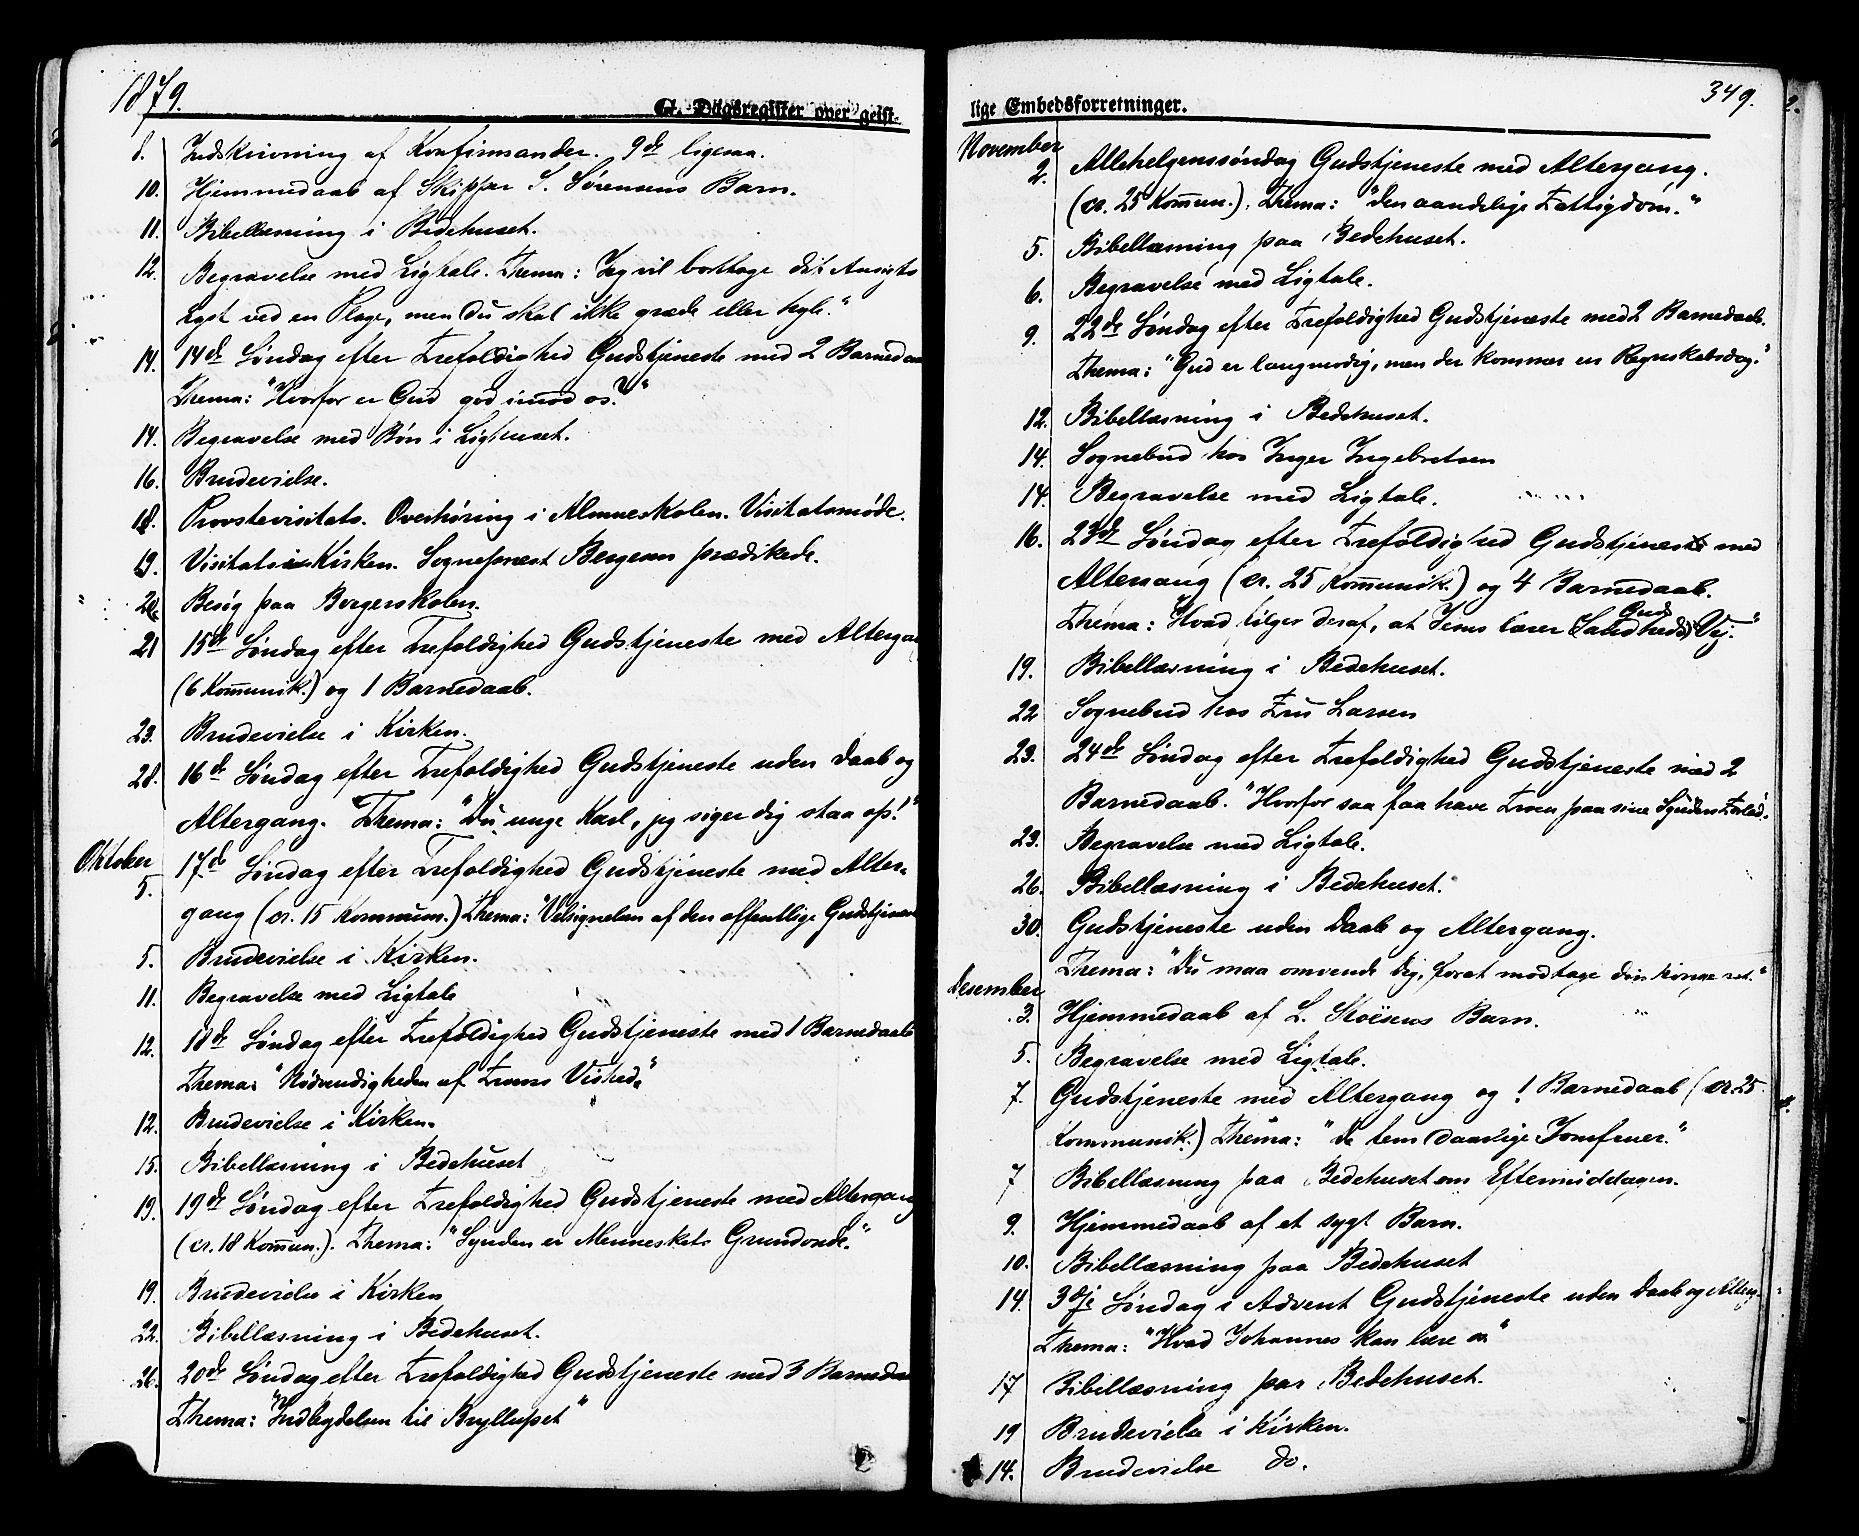 1879.
G. Dagsregister over geist-
8. Indskrivning af Konfirmander. 9de ligesaa.
10. Hjemmedaab af Skipper S. Sørensens Barn.
11. Bibellæsning i Bedehuset.
12. Begravelse med Ligtale. Thema: Jeg vil borttage dit Ansigts
Lyst ved en Plage, men Du skal ikke græde eller hyle."
14. 14de Søndag efter Trefoldighed Gudstjeneste med 2 Barnedaab
Thema: "Hvorfor er Gud god imod os?"
14. Begravelse med Bøn i Lighuset.
16. Brudevielse.
18. Provstevisitats. Overhøring i Almueskolen. Visitatsmøde.
19. Visitats i Kirken. Sogneprest Bergesen prædikede.
20. Besøg paa Borgerskolen.
21 15de Søndag efter Trefoldighed Gudstjeneste med Altergang
(6 Kommunik.) og 1 Barnedaab.
23. Brudevielse i Kirken.
28. 16de Søndag efter Trefoldighed Gudstjeneste uden Daab og
Altergang. Thema: "Du unge Karl, jeg siger dig staa op!"
Oktober
5. 17de Søndag efter Trefoldighed Gudstjeneste med Alter-
gang (cr. 15 Kommun.) Thema: "Velsignelsen af den offentlige Gudstjeneste
5. Brudevielse i Kirken.
11. Begravelse med Ligtale
12. 18de Søndag efter Trefoldighed Gudstjeneste med 1 Barnedaab
Thema: "Nødvendigheden af Troens Vished."
12. Brudevielse i Kirken.
15. Bibellæsning i Bedehuset
19. 19de Søndag efter Trefoldighed Gudstjeneste med Altergang
(cr. 18 Kommun.). Thema: "Synden er Menneskets Grundonde."
19. Brudevielse i Kirken
22. Bibellæsning i Bedehuset.
26. 20de Søndag efter Trefoldighed Gudstjeneste med 3 Barnedaab
Thema: "Indbydelsen til Bryllupet"
349.
lige Embedsforretninger.
November
2. Allehelgenssøndag Gudstjeneste med Altergang.
(cr. 25 Kommun.). Thema: "den aandelige Fattigdom."
5. Bibellæsning paa Bedehuset.
6. Begravelse med Ligtale.
9. 22de Søndag efter Trefoldighed Gudstjeneste med 2 Barnedaab.
Thema: "Gud er langmodig, men der kommer en Regnskabsdag."
12. Bibellæsning i Bedehuset.
14. Sognebud hos Inger Ingebretsen
14. Begravelse med Ligtale.
16. 23de Søndag efter Trefoldighed Gudstjeneste med
Altergang (cr. 25 Kommunik.) og 4 Barnedaab.
Thema: Hvad følger deraf, at Jesus lærer Guds (Sandheds) Vej."
19. Bibellæsning i Bedehuset.
22 Sognebud hos Fru Larsen
23. 24de Søndag efter Trefoldighed Gudstjeneste med 2
Barnedaab. "Hvorfor saa faa have Troen paa sine Synders Forlad."
23. Begravelse med Ligtale.
26. Bibellæsning i Bedehuset.
30. Gudstjeneste uden Daab og Altergang.
Thema: "Du maa omvende Dig, forat modtage din Konge ret."
Desember
3. Hjemmedaab af L. Støisens Barn.
5. Begravelse med Ligtale.
7. Gudstjeneste med Altergang og 1 Barnedaab (cr. 25
Kommunik.) Thema: "De fem daarlige Jomfruer."
7 Bibellæsning paa Bedehuset om Eftermiddagen.
9. Hjemmedaab af et sygt Barn.
10. Bibellæsning paa Bedehuset
14. 3dje Søndag i Advent Gudstjeneste uden Daab og Alterg.
Thema: "Hvad Johannes kan lære os"
17 Bibellæsning paa Bedehuset.
19 Brudevielse i Kirken.
14. Brudevielse do.